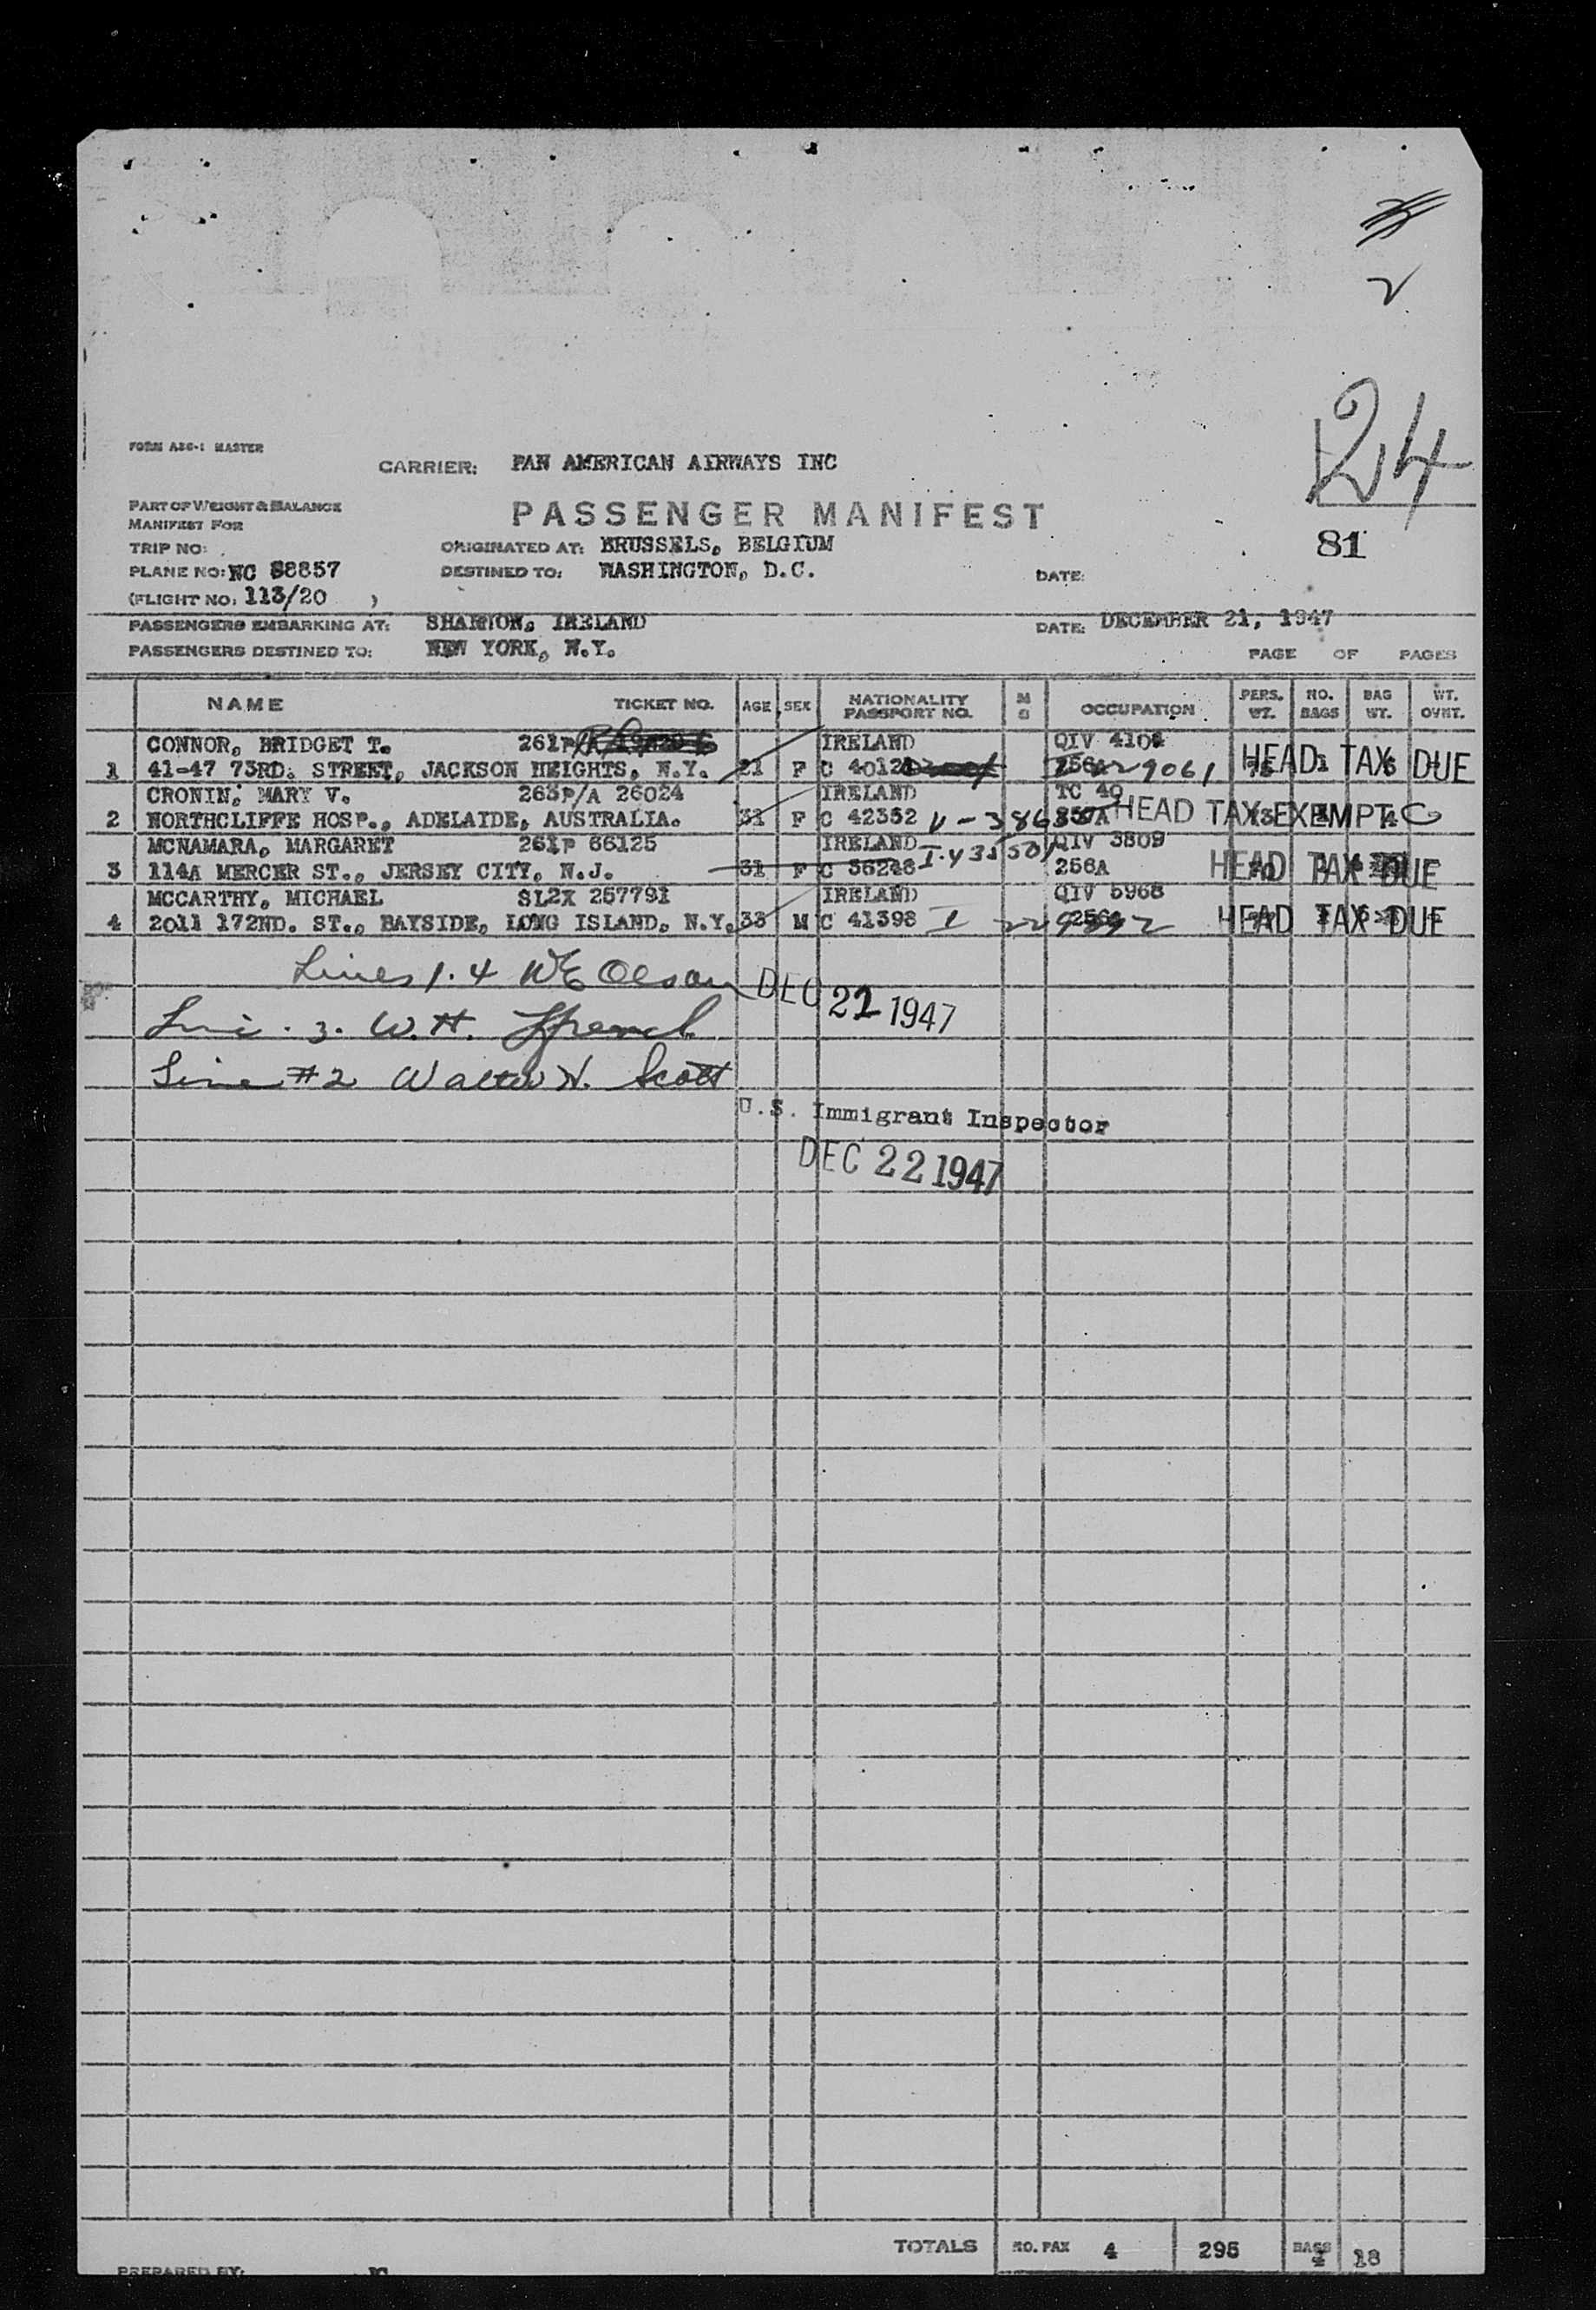 24
FORM ABC-1 MASTER
CARRIER: PAN AMERICAN AIRWAYS INC
PART OF WEIGHT & BALANCE
MANIFEST FOR
PASSENGER MANIFEST
81
TRIP NO:
ORIGINATED AT: BRUSSELS, BELGIUM
PLANE NO: NC 88857
DESTINED TO: WASHINGTON, D.C.
DATE:
(FLIGHT NO: 113/20 )
PASSENGERS EMBARKING AT: SHANNON, IRELAND
DATE: DECEMBER 21, 1947
PASSENGERS DESTINED TO: NEW YORK, N.Y.
PAGE OF PAGES
NAME TICKET NO. AGE SEX NATIONALITY PASSPORT NO. OCCUPATION PERS. WT. NO. BAGS BAG WT. WT. OVHT.
CONNOR, BRIDGET T. 261P IRELAND QIV
1 41-47 73RD. STREET, JACKSON HEIGHTS, N.Y. 21 F C HEAD TAX DUE
CRONIN, MARY V. 263P/A 26024 IRELAND TC 40
2 NORTHCLIFFE HOSP., ADELAIDE, AUSTRALIA. 31 F C 42352 HEAD TAX EXEMPT
MCNAMARA, MARGARET 261P 66125 IRELAND QIV 3809
3 114A MERCER ST., JERSEY CITY, N.J. 31 F C 36248 256A HEAD TAX DUE
MCCARTHY, MICHAEL SL2X 257791 IRELAND QIV 5968
4 2011 172ND. ST., BAYSIDE, LONG ISLAND, N.Y. 33 M C 41398 HEAD TAX DUE
Lines 1.4 WE Olson DEC 22 1947
Line . 3. W.H.
Line #2 Walter H. Scott
U.S. Immigrant Inspector
DEC 22 1947
TOTALS NO. PAX 4 295 BAGS 18
PREPARED BY: